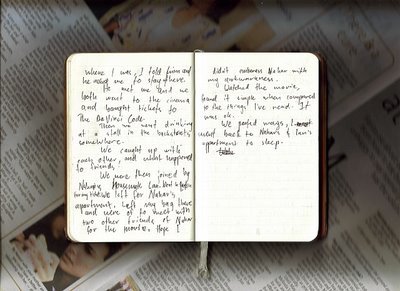 where I was, I told him and
he asked me to stay there.
He met me and we
both went to the cinema
and bought tickets to
The DaVinci Code.
Then we went drinking
at a stall in the backstreets
somewhere.
We caught up with
each other, and what happened
to friends.
We were then joined by
Nahar's housemate Ian. And
we left for Nahar's
apartment. Left my bag there
and were off to meet with
two other friends of Nahar
for the movie. Hope I
didn't embarass Nahar with
my awkwardness.
Watched the movie,
found it simple when compared
to the things I've read. It
was ok.
We parted ways, I
went back to Nahar's & Ian's
apartment to sleep.